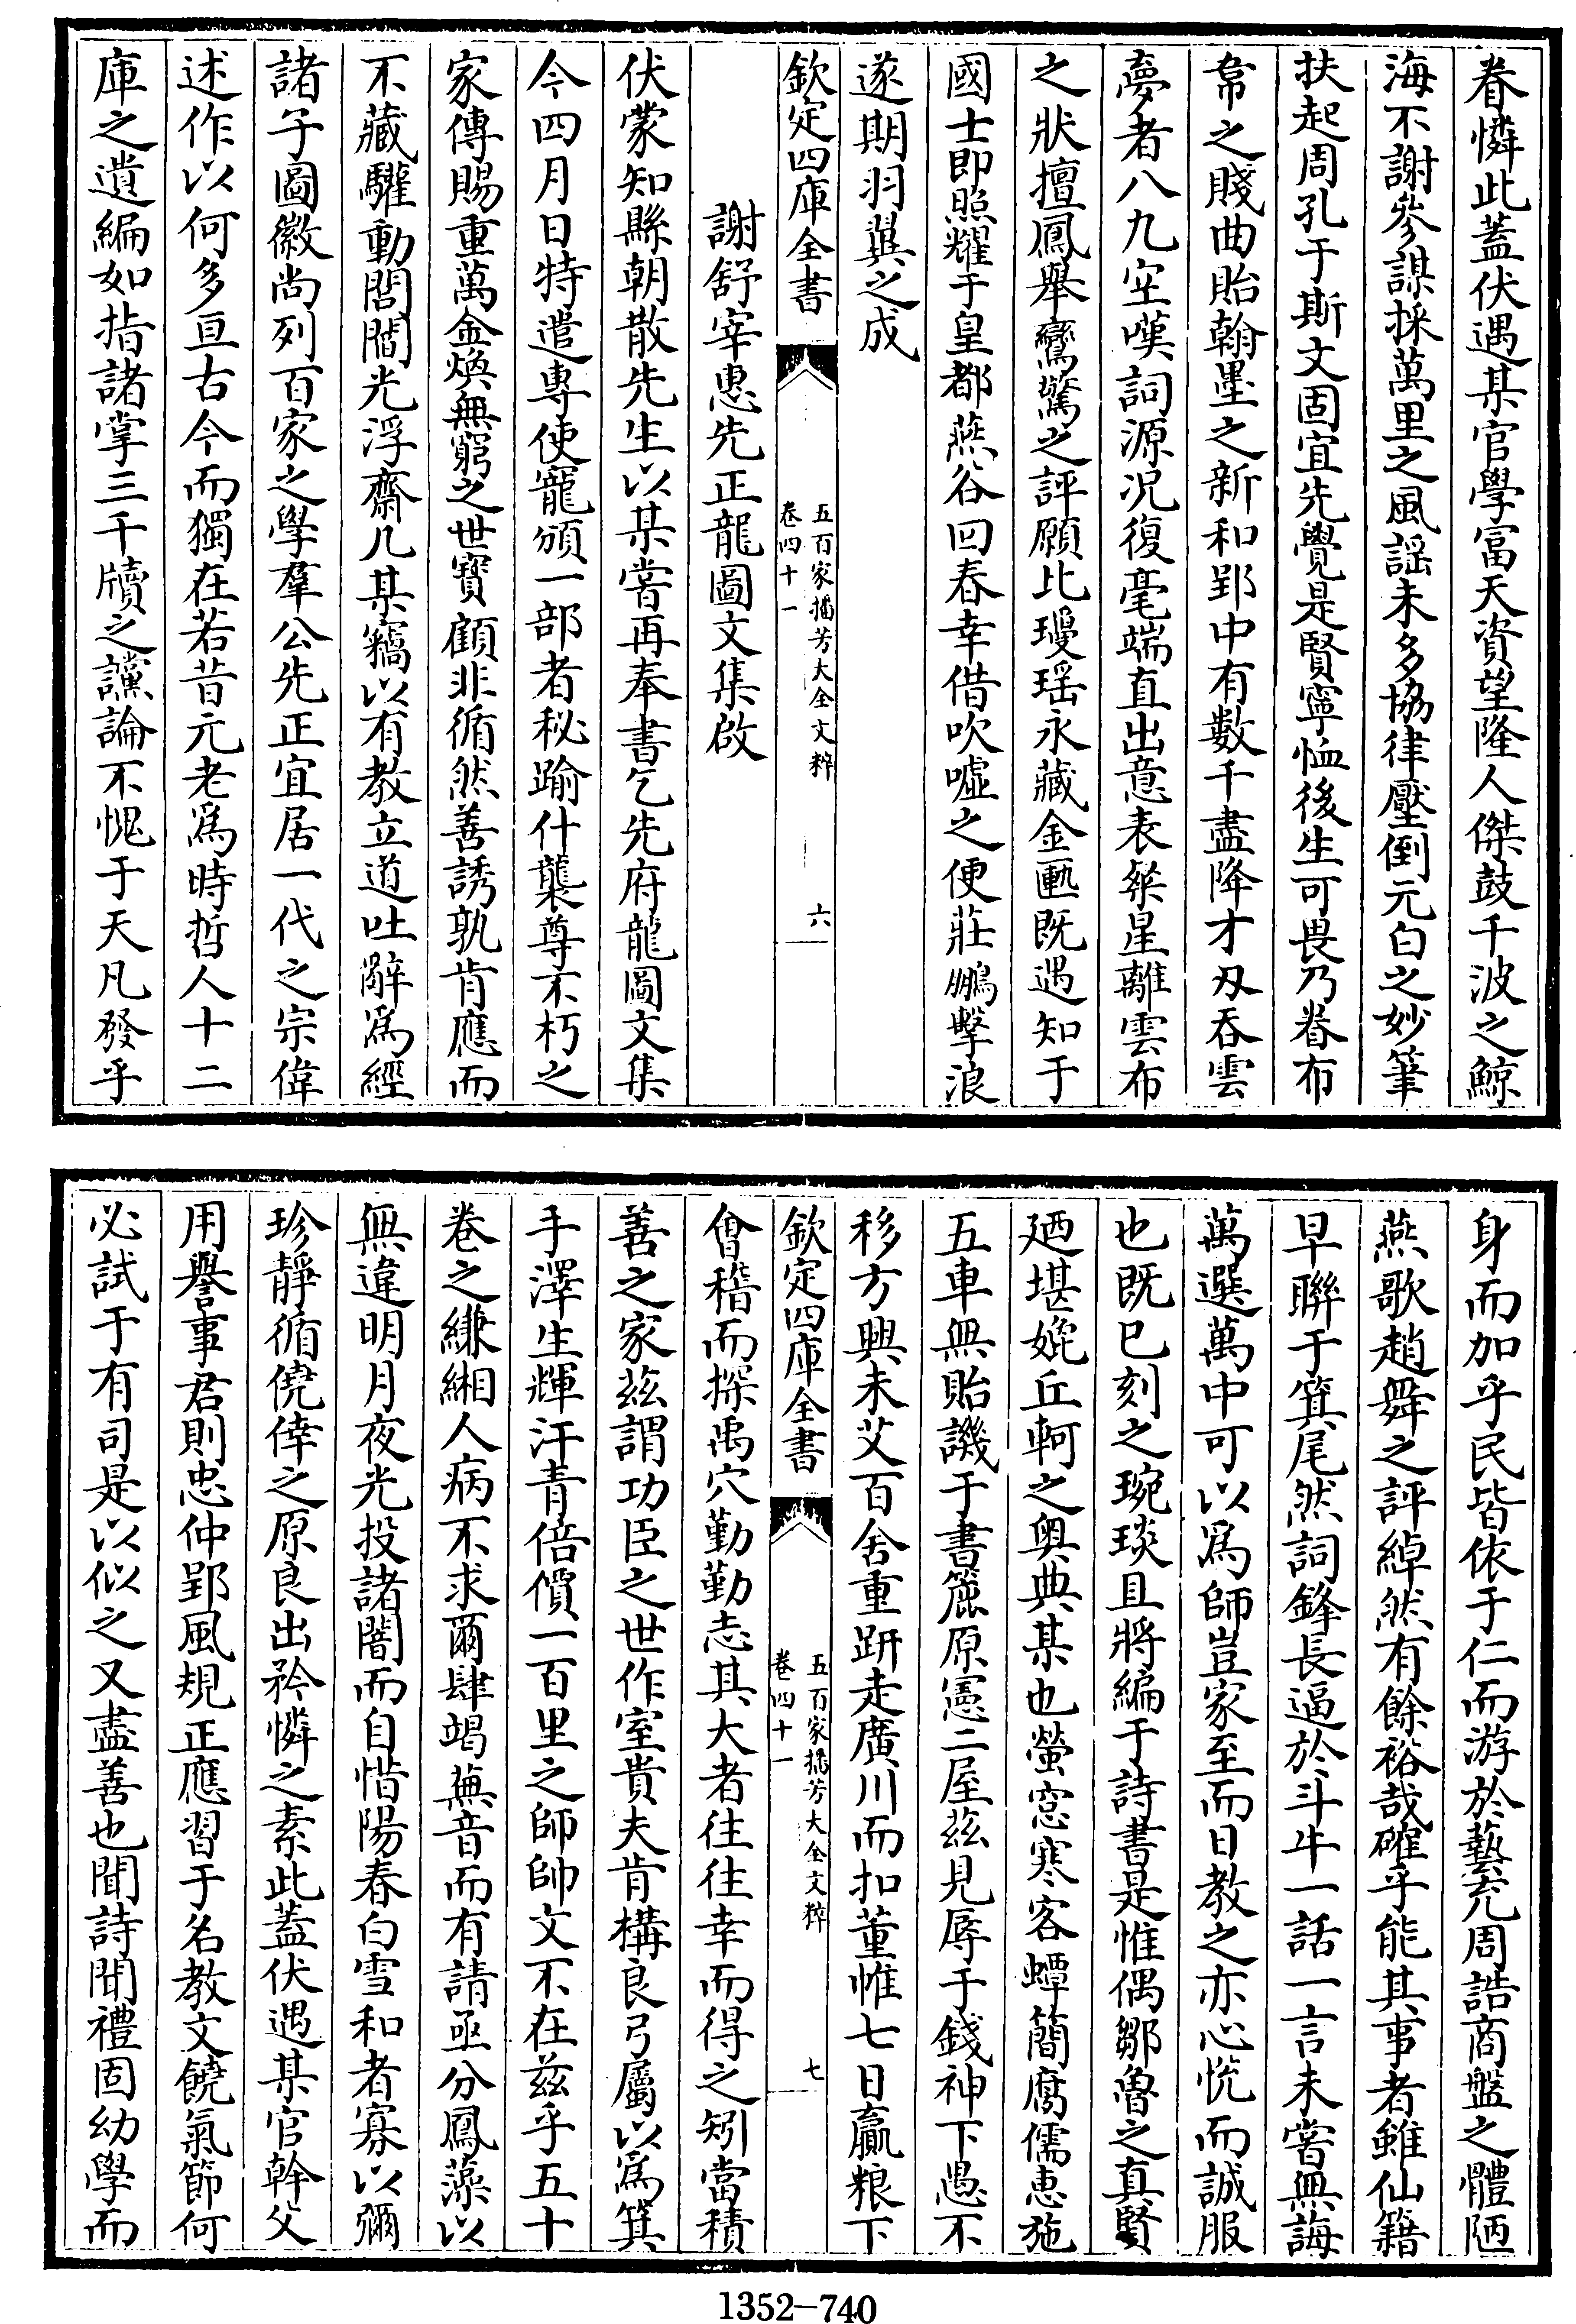 眷憐此蓋伏遇某官學富天資望隆人傑鼓千波之鯨
海不謝參謀採萬里之風謡未多協律壓倒元白之妙筆
扶起周孔于斯文固宜先覺是賢寧恤後生可畏乃眷布
韋之賤曲貽翰墨之新和郢中有數千盡降才刃吞雲
夢者八九空嘆詞源况復毫端直出意表粲星離雲布
之狀擅鳳舉鸞驚之評願比瓊瑶永藏金匭既遇知于
國士即照耀于皇都燕谷回春幸借吹噓之便莊鵬擊浪
遂期羽翼之成
欽定四庫全書
五百家播芳大全文粹
卷四十一
六
謝舒宰惠先正龍圖文集啟
伏蒙知縣朝散先生以某嘗再奉書乞先府龍圖文集
今四月日特遣專使寵頒一部者秘踰什襲尊不朽之
家傳賜重萬金煥無窮之世寶顧非循然善誘孰肯應而
不藏驩動閭閻光浮齋几某竊以有教立道吐辭爲經
諸子圖徽尚列百家之學羣公先正宜居一代之宗偉
述作以何多亘古今而獨在若昔元老爲時哲人十二
庫之遺編如指諸掌三千牘之讜論不愧于天凡發乎
身而加乎民皆依于仁而游於藝充周誥商盤之體陋
燕歌趙舞之評綽然有餘裕哉確乎能其事者雖仙籍
早聯于箕尾然詞鋒長逼於斗牛一話一言未嘗無誨
萬選萬中可以爲師豈家至而日教之亦心悦而誠服
也既已刻之琬琰且將編于詩書是惟偶鄒魯之真賢
廼堪媲丘軻之奥典某也螢窓寒客蟫簡腐儒惠施
五車無貽譏于書簏原憲二屋兹見辱于錢神下愚不
移方興未艾百舍重趼走廣川而扣董帷七日贏粮下
欽定四庫全書
五百家播芳大全文粹
卷四十一
七
會稽而探禹穴勤勤志其大者往往幸而得之矧當積
善之家兹謂功臣之世作室貴夫肯構良弓屬以爲箕
手澤生輝汗青倍價一百里之師帥文不在兹乎五十
卷之縑緗人病不求爾肆竭蕪音而有請亟分鳳藻以
無違明月夜光投諸闇而自惜陽春白雪和者寡以彌
珍靜循僥倖之原良出矜憐之素此蓋伏遇某官幹父
用譽事君則忠仲郢風規正應習于名教文饒氣節何
必試于有司是以似之又盡善也聞詩聞禮固幼學而
1352-740